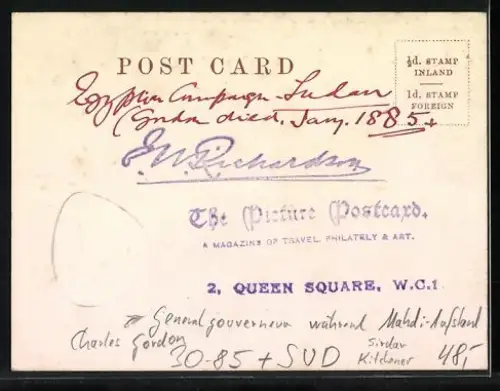 POST CARD
½d. STAMP
INLAND
1d. STAMP
FOREIGN
Egyptian Campaign - Sudan
(Gordon died, Jany. 1885 +
E.W. Richardson
The Picture Postcard.
A MAGAZINE OF TRAVEL, PHILATELY & ART.
2, QUEEN SQUARE, W.C.1
Generalgouverneur während Mahdi-Aufstand
Charles Gordon
30-85 + SUD
Sirdar
Kitchener
48,-